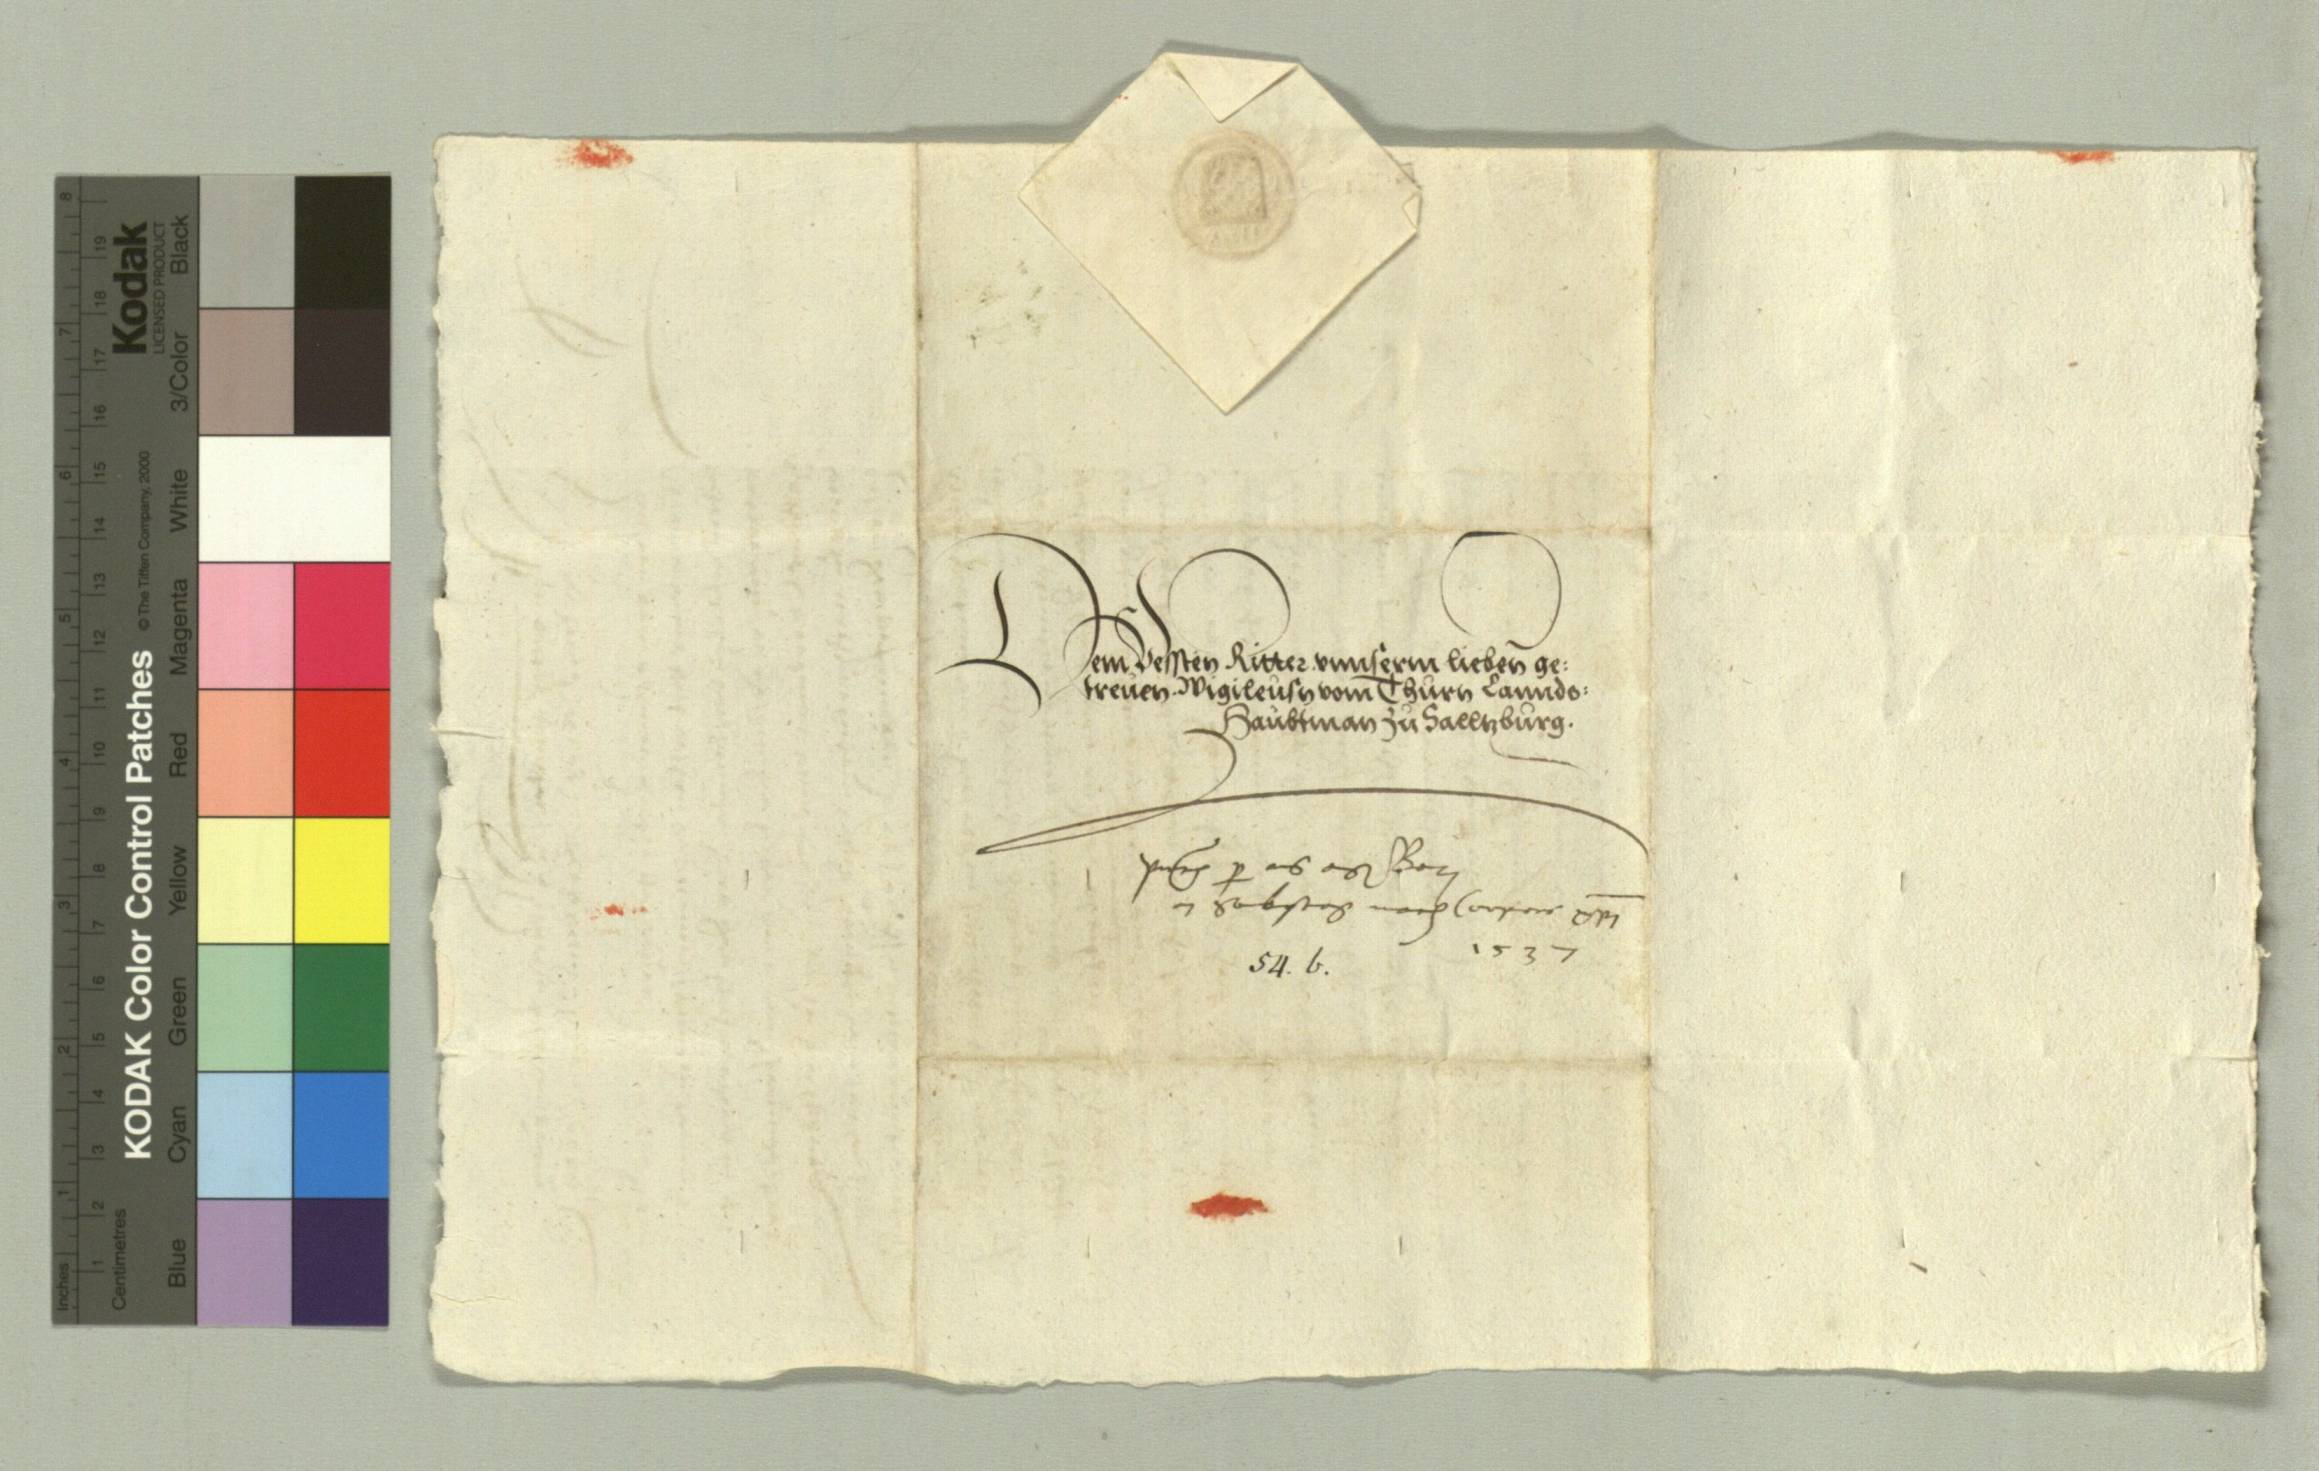 Dem Vessten Ritter vnnserm lieben ge:
treuen Wigileusn vom Thurn Lannds:
Haubtman zu Salltzburg.
1537
54. b.
KODAK Color Control Patches
© The Tiffen Company, 2000
Kodak
LICENSED PRODUCT
Inches
1 2 3 4 5 6 7 8
Centimetres
1 2 3 4 5 6 7 8 9 10 11 12 13 14 15 16 17 18 19
Blue Cyan Green Yellow Red Magenta White 3/Color Black